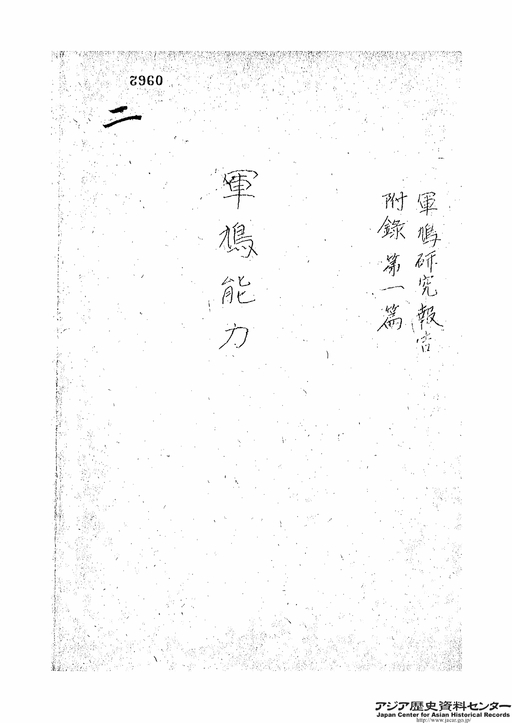 0962
二
軍鳩研究報告
附錄第一篇
軍鳩能力
アジア歴史資料センター
Japan Center for Asian Historical Records
http://www.jacar.go.jp/